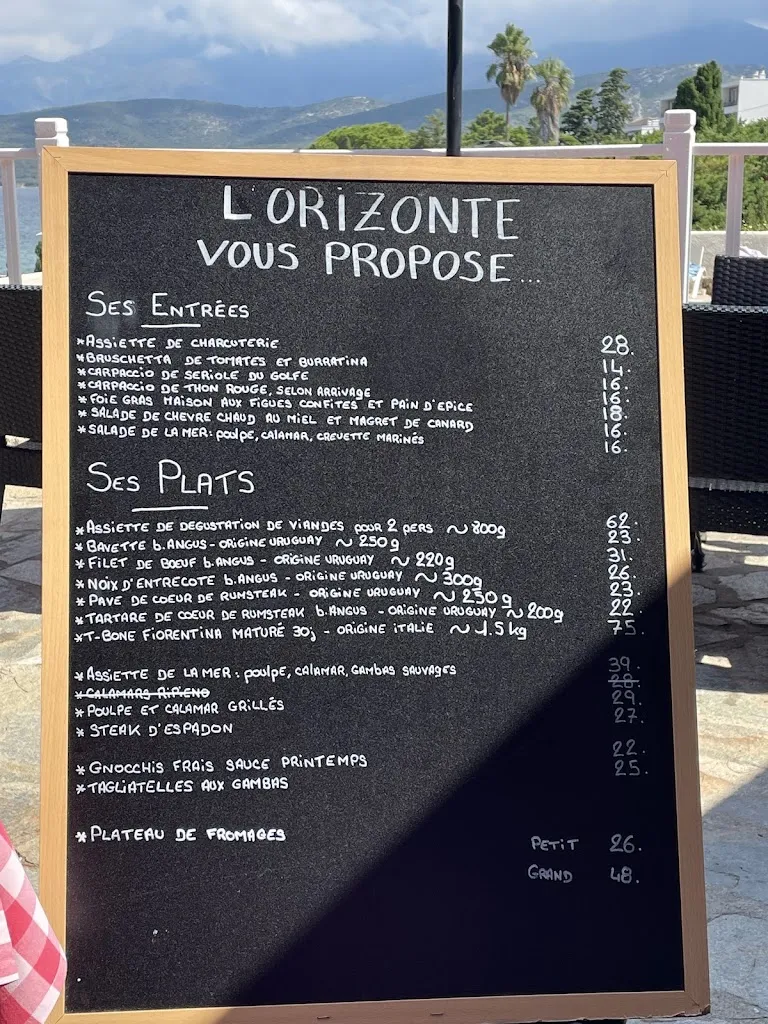 L'ORIZONTE
VOUS PROPOSE...
SES ENTRÉES
*ASSIETTE DE CHARCUTERIE 28.
*BRUSCHETTA DE TOMATES ET BURRATINA 14.
*CARPACCIO DE SERIOLE DU GOLFE 16.
*CARPACCIO DE THON ROUGE, SELON ARRIVAGE 16.
*FOIE GRAS MAISON AUX FIGUES CONFITES ET PAIN D'EPICE 18.
*SALADE DE CHEVRE CHAUD AU MIEL ET MAGRET DE CANARD 16.
*SALADE DE LA MER: poulpe, CALAMAR, CREVETTE MARINÉS 16.
SES PLATS
*ASSIETTE DE DEGUSTATION DE VIANDES pour 2 pers ~ 800g 62.
*BAVETTE b.ANGUS - ORIGINE URUGUAY ~ 250g 23.
*FILET DE BOEUF b.ANGUS - ORIGINE URUGUAY ~ 220g 31.
*NOIX D'ENTRECOTE b.ANGUS - ORIGINE URUGUAY ~ 300g 26.
*PAVE DE COEUR DE RUMSTEAK - ORIGINE URUGUAY ~ 250g 23.
*TARTARE DE COEUR DE RUMSTEAK b.ANGUS - ORIGINE URUGUAY ~ 200g 22.
*T-BONE FIORENTINA MATURÉ 30j - ORIGINE ITALIE ~ 1.5kg 75.
*ASSIETTE DE LA MER: poulpe, CALAMAR, GAMBAS SAUVAGES 39.
*CALAMARS RIPIENO 28.
*POULPE ET CALAMAR GRILLÉS 29.
*STEAK D'ESPADON 27.
*GNOCCHIS FRAIS SAUCE PRINTEMPS 22.
*TAGLIATELLES AUX GAMBAS 25.
*PLATEAU DE FROMAGES PETIT 26.
GRAND 48.